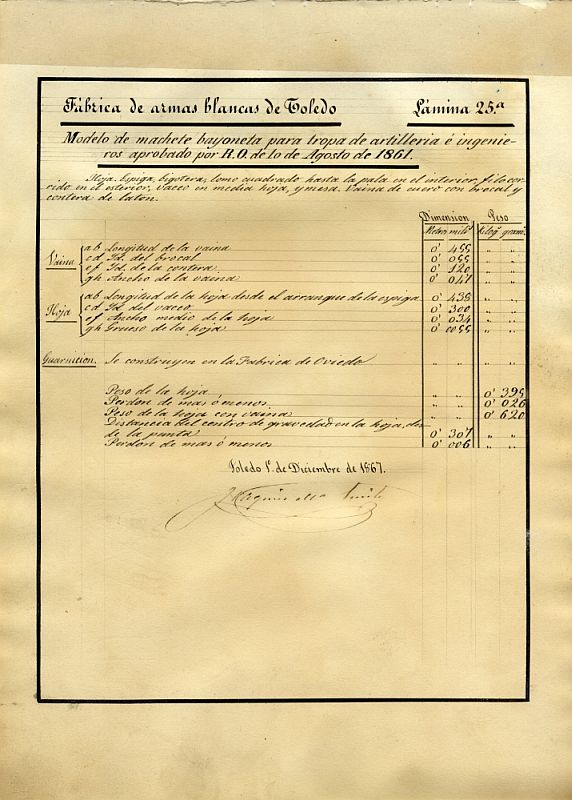 Fábrica de armas blancas de Toledo Lámina 25.ª
Modelo de machete bayoneta para tropa de artilleria é ingenie-
ros aprobado por R.O. de 10 de Agosto de 1861.
Hoja. Espiga, bigotera, lomo cuadrado hasta la pala en el interior, filo cor-
rido en el esterior, vaceo en media hoja, y mesa. Vaina de cuero con brocal y
contera de laton.
Dimension Peso
Metro mil.s Kilog.s gram.s
Vaina ab Longitud de la vaina 0' 455 " "
cd Id. del brocal 0' 055 " "
ef Id. de la contera 0' 120 " "
gh Ancho de la vaina 0' 047 " "
Hoja ab Longitud de la hoja desde el arranque de la espiga 0' 438 " "
cd Id. del vaceo 0' 300 " "
ef Ancho medio de la hoja 0' 034 " "
gh Grueso de la hoja 0' 0055 " "
Guarnicion. Se construyen en la Fabrica de Oviedo " " " "
Peso de la hoja " " 0' 395
Perdon de mas ó menos " " 0' 026
Peso de la hoja con vaina " " 0' 620
Distancia del centro de gravedad en la hoja, des
de la punta 0' 307 " "
Perdon de mas ó menos 0' 006 " "
Toledo 1.º de Diciembre de 1867.